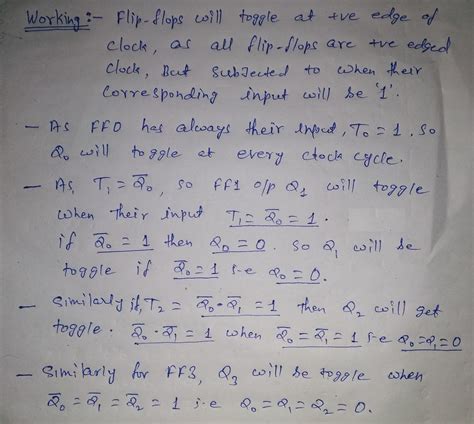 Working :- Flip-flops will toggle at +ve edge of
clock, as all flip-flops are +ve edged
clock, But subjected to when their
corresponding input will be '1'.
- As FF0 has always their input, T₀ = 1. so
Q₀ will toggle at every clock cycle.
- As, T₁ = Q̅₀, so FF1 o/p Q₁ will toggle
when their input T₁ = Q̅₀ = 1.
if Q̅₀ = 1 then Q₀ = 0. So Q₁ will be
toggle if Q̅₀ = 1 i-e Q₀ = 0.
- Similarly if, T₂ = Q̅₀·Q̅₁ = 1 then Q₂ will get
toggle. Q̅₀·Q̅₁ = 1 when Q̅₀ = Q̅₁ = 1 i-e Q₀=Q₁=0
- Similarly for FF3, Q₃ will be toggle when
Q̅₀ = Q̅₁ = Q̅₂ = 1 i-e Q₀ = Q₁ = Q₂ = 0.